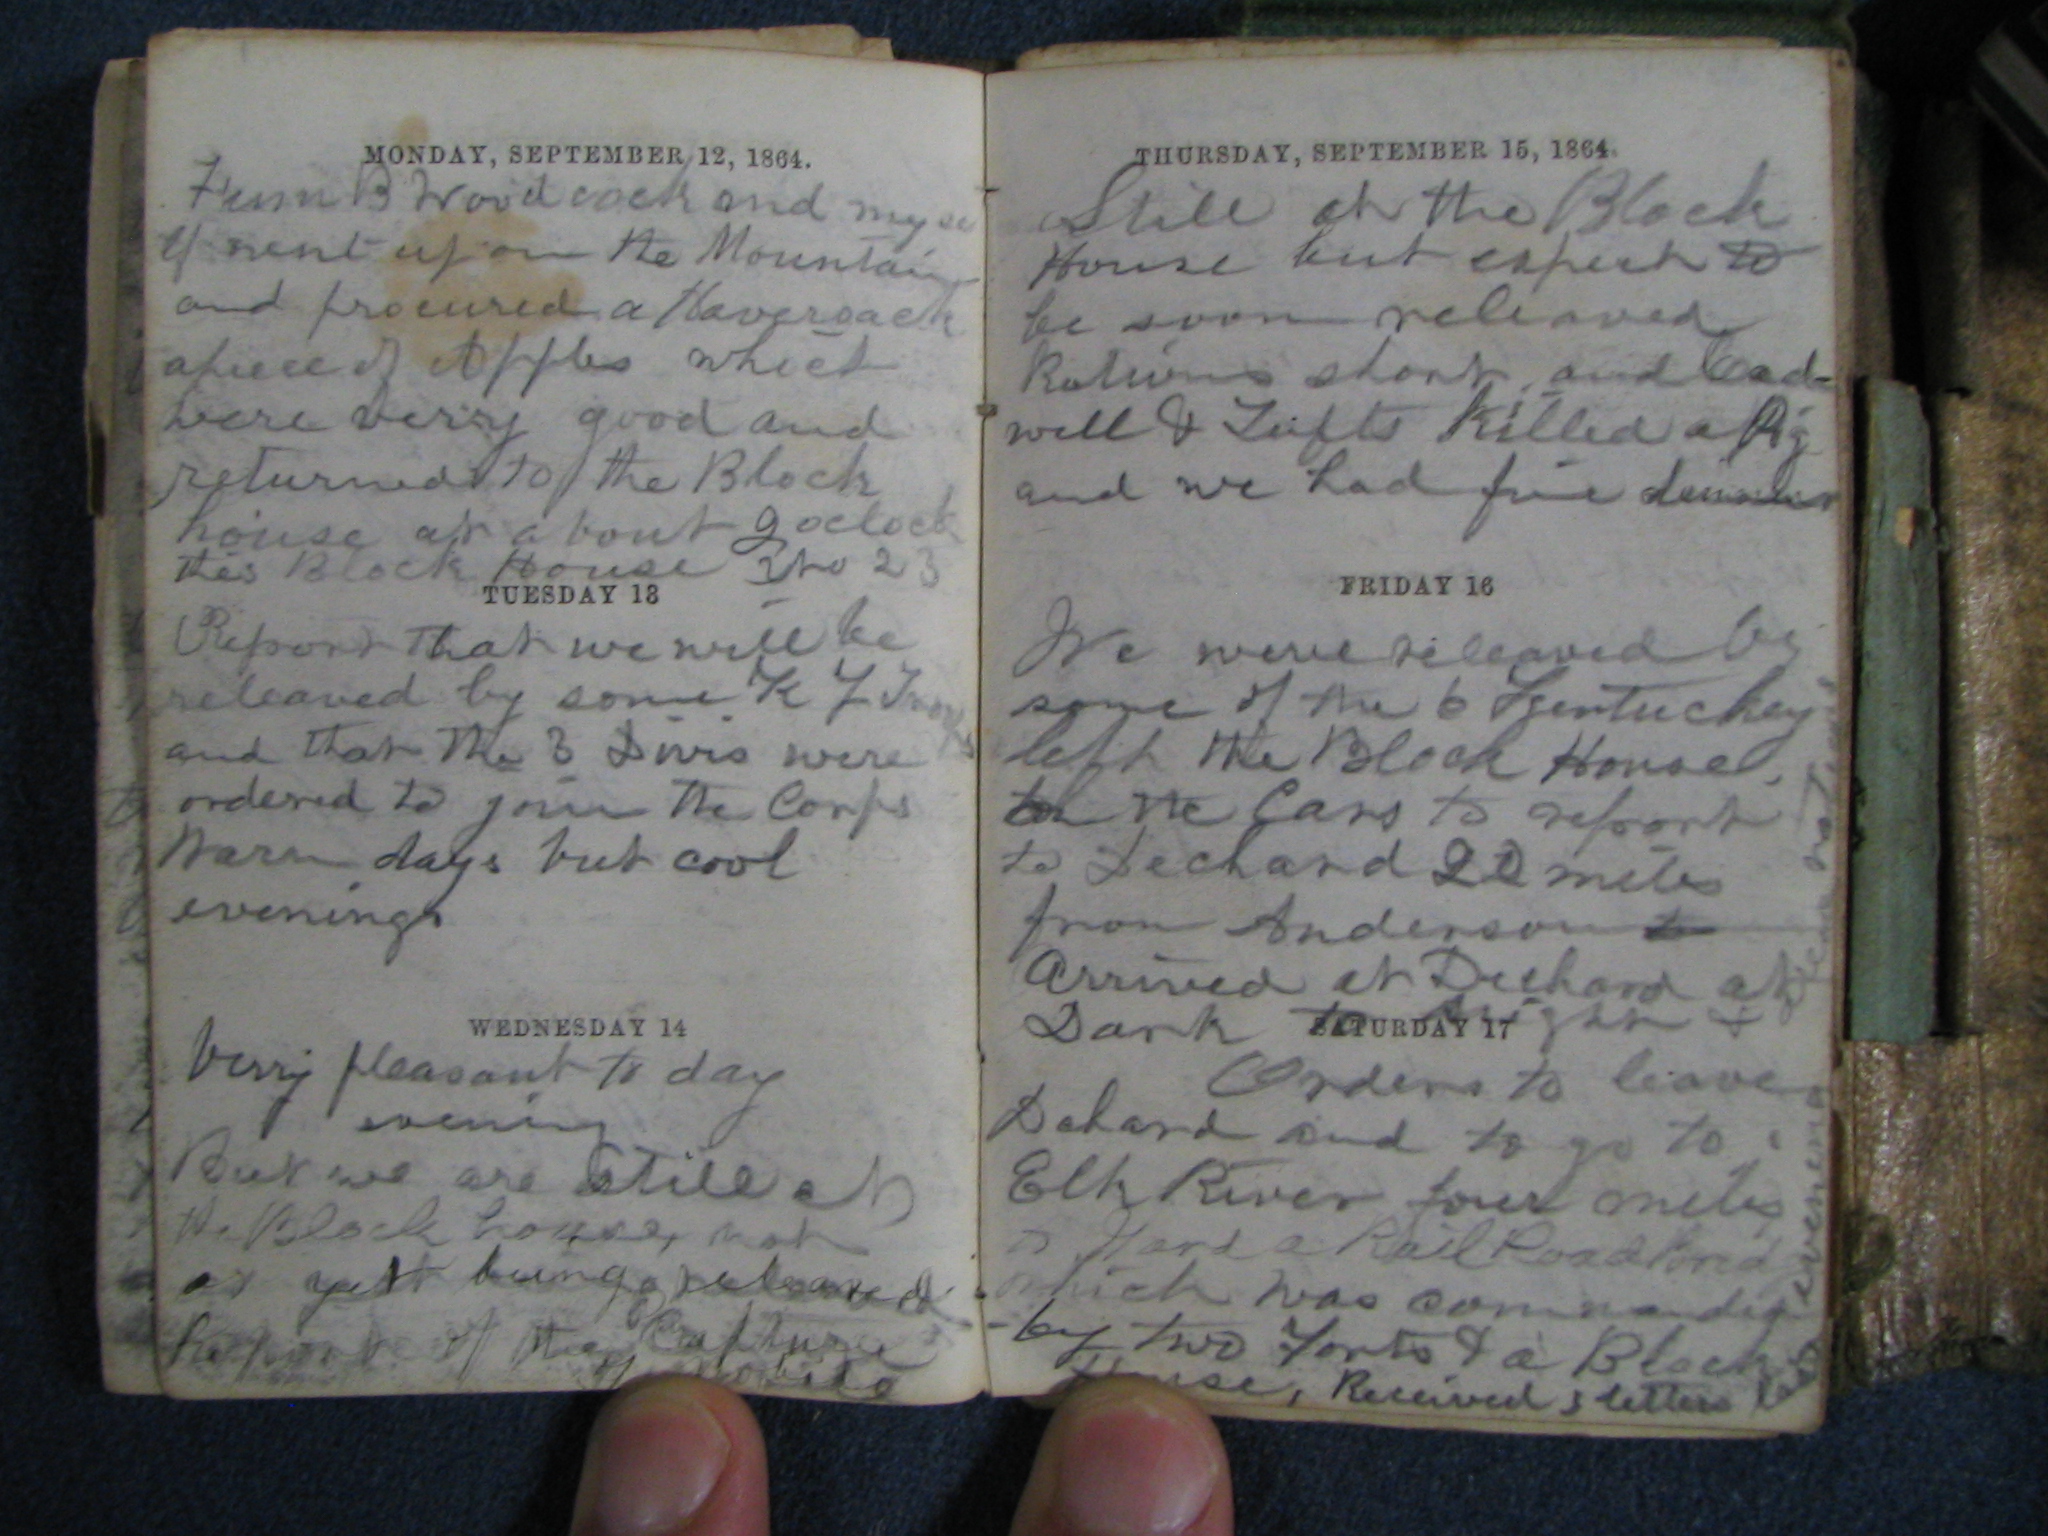 MONDAY, SEPTEMBER 12, 1864.
B Woodcock and my se
lf went up on the Mountain
and procured a Haversack
apiece of Apples which
were verry good and
returned to the Block
house at about 9 oclock
this Block House No 23
TUESDAY 13
Report that we will be
releaved by some K Y Troops
and that the 3 Divis were
ordered to join the Corps
Warm days but cool
evenings
WEDNESDAY 14
Verry pleasant to day
evening
But we are still at
the Block house, not
as yet being releaved
Reports of the Capture
of Mobile
THURSDAY, SEPTEMBER 15, 1864.
Still at the Block
House but expect to
be soon releaved
Rations short and Cad-
well & Tufts Killed a Pig
and we had fine dinner
FRIDAY 16
We were releaved by
some of the 6 Kentuckey
left the Block House
on the Cars to report
to Dechard 20 miles
from Anderson to
Arrived at Dechard at
Dark to Night &
SATURDAY 17
Orders to leave
Dchard and to go to
Elk River four miles
to Gard a Rail Road
which was commanded
by two Forts & a Block
House, Received 3 letters
evening